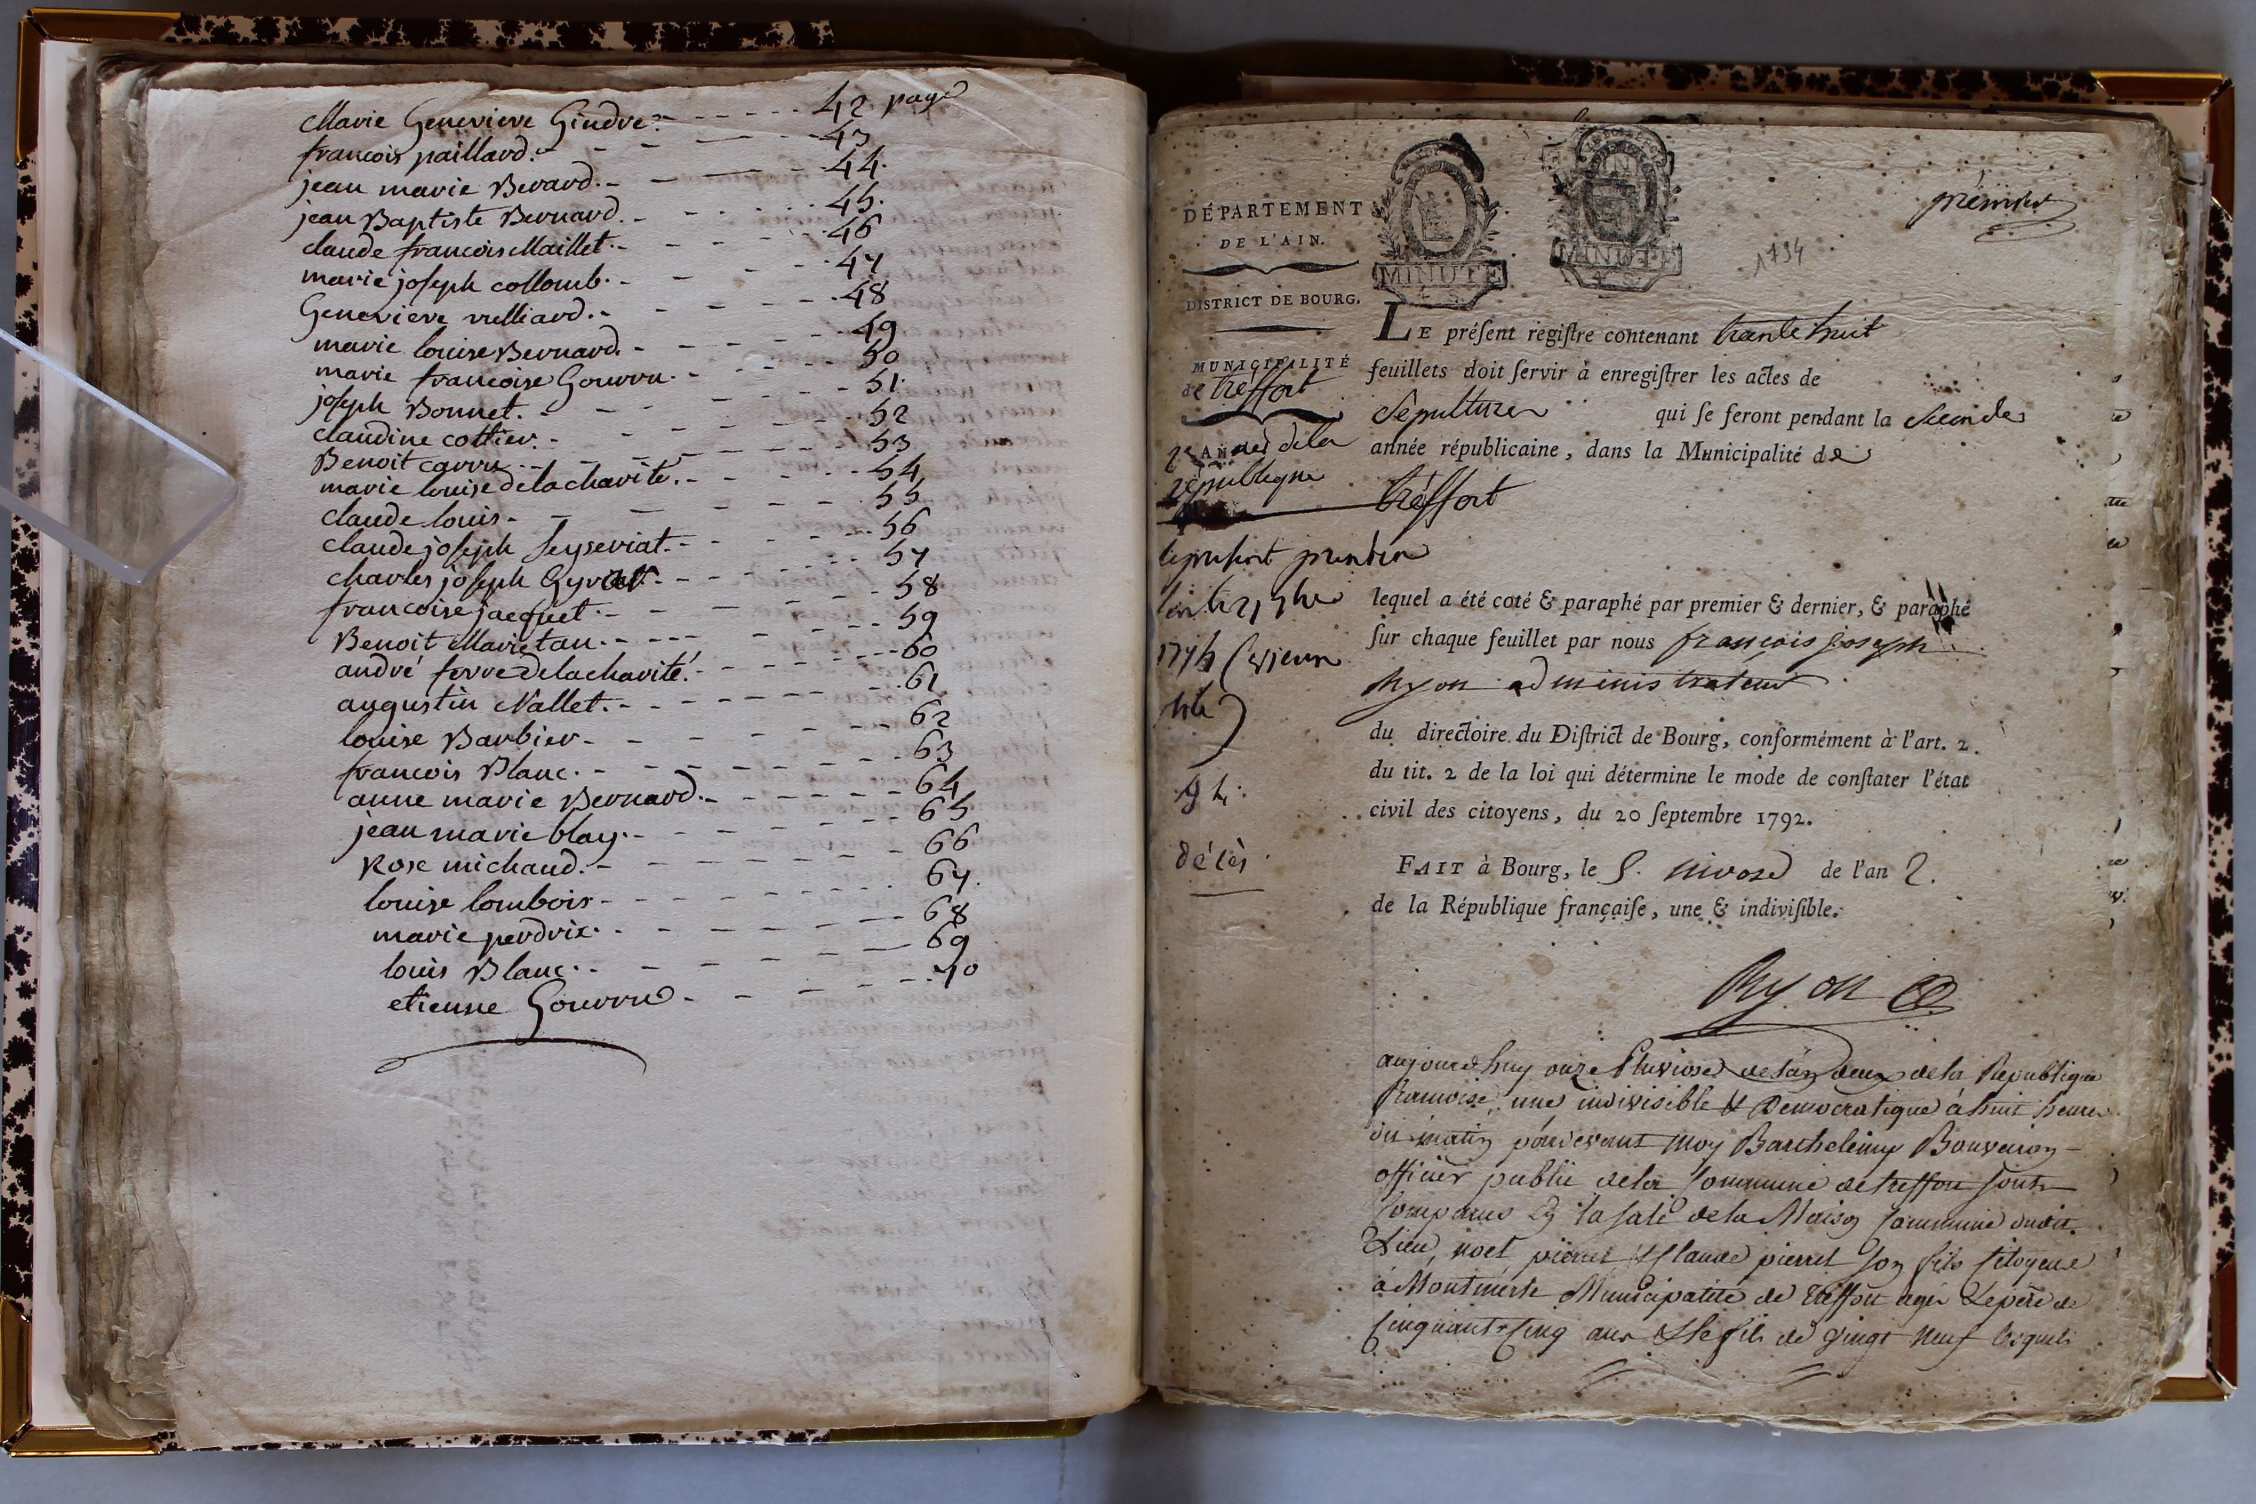 Marie Genevieve Gindre. - - - - - 42 page
francois paillard. - - - - - 43
jean marie Berard. - - - - - 44.
jean Baptiste Bernard. - - - - - 45.
claude francois Maillet. - - - - - 46
marie joseph collomb. - - - - - 47
Genevieve vulliard. - - - - - 48
marie louise Bernard. - - - - - 49
marie francoise Gourru. - - - - - 50
joseph Bonnet. - - - - - 51.
claudine cottier. - - - - - 52
Benoit carru - - - - - 53
marie louise delacharité. - - - - - 54
claude louis - - - - - 55
claude joseph seyseriat. - - - - - 56
charles joseph - - - - - 57
francoise jacquet. - - - - - 58
Benoit Marietan. - - - - - 59
andré ferre delacharité. - - - - - 60
augustin Nallet. - - - - - 61
louise Barbier - - - - - 62
francois Blanc. - - - - - 63
anne marie Bernard. - - - - - 64
jean marie blay. - - - - - 65
Rose michaud. - - - - - 66
louise lombois - - - - - 67.
marie perdrix. - - - - - 68
louis Blanc. - - - - - 69
etienne Gourru - - - - - 70
premier
1794
MINUTE
DÉPARTEMENT
DE L'AIN.
DISTRICT DE BOURG.
MUNICIPALITÉ
de treffort
2e Année de la
republique
94.
décès
LE préſent regiſtre contenant trente huit
feuillets doit ſervir à enregiſtrer les actes de
Sépultures qui ſe feront pendant la seconde
année républicaine, dans la Municipalité de
tréffort
lequel a été coté & paraphé par premier & dernier, & paraphé
ſur chaque feuillet par nous françois joseph
Ryon administrateur
du directoire du Diſtrict de Bourg, conformément à l'art. 2.
du tit. 2 de la loi qui détermine le mode de conſtater l'état
civil des citoyens, du 20 ſeptembre 1792.
FAIT à Bourg, le 5. nivose de l'an 2.
de la République françaiſe, une & indiviſible.
Ryon
aujourdhuy onze Pluviose de l'an deux de la Republique
francoise, une indivisible & Democratique à huit heures
du matin pardevant moy Barthelemy Bouveiron
officier public de la Commune de treffort sont
Comparus En la sale de la Maison Commune dudit
Lieu, noel pierret & Claude pierret son fils Citoyens
à Montmerle Municipalité de treffort agés Le père de
Cinquante Cinq ans & le fils de vingt neuf lesquels